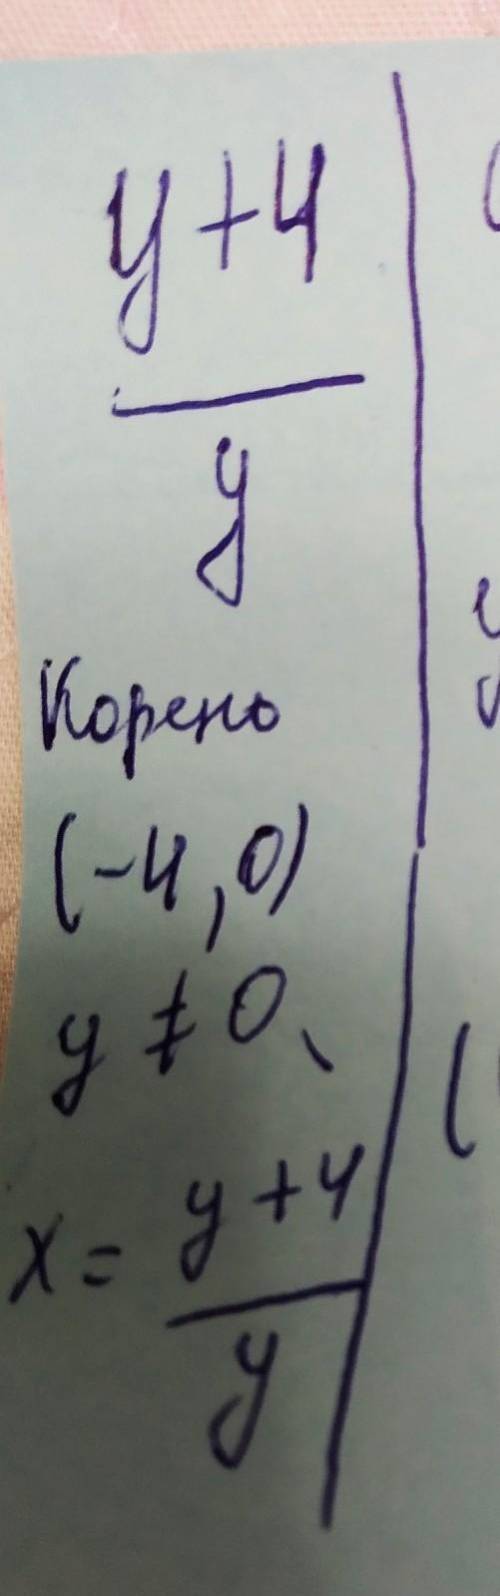 y+4
y
Корень
(-4,0)
y ≠ 0,
x = y+4
y